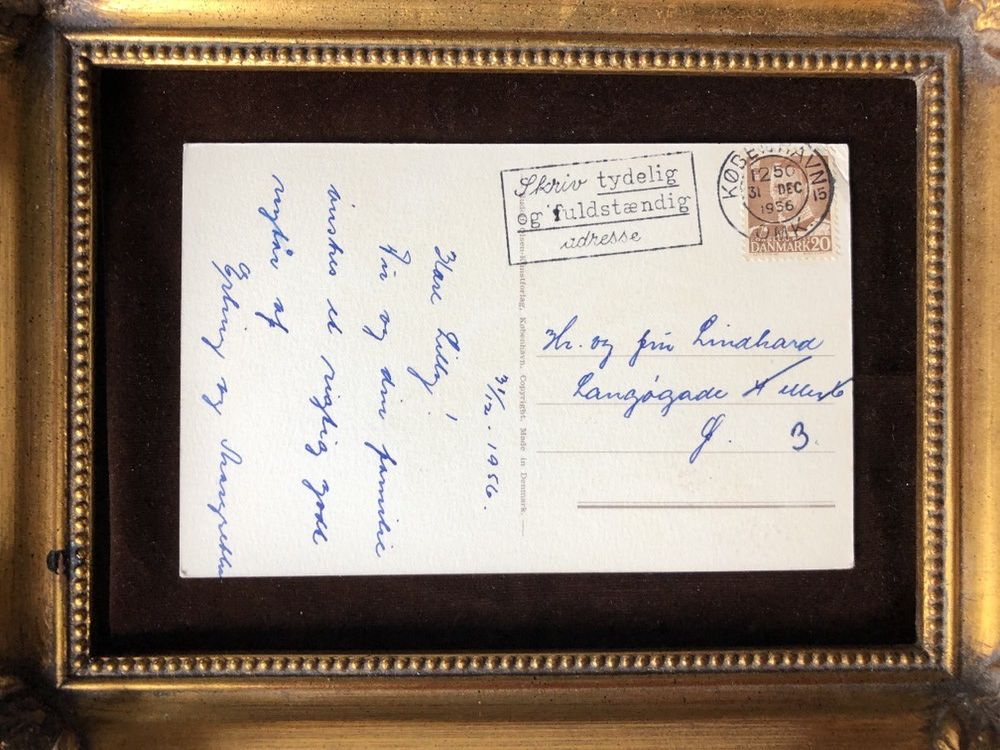 Skriv tydelig
og fuldstændig
adresse
KØBENHAVN
1250
31 DEC
1956
15
OMK.
DANMARK 20
Hr. og fru Lindhard
Langøgade
Ø.
3/12. - 1956.
Kære Lilly!
Dir og din familie
ønskes et rigtig godt
nytår af
Erling og
Olsen-Kunstforlag, København. Copyright. Made in Denmark.